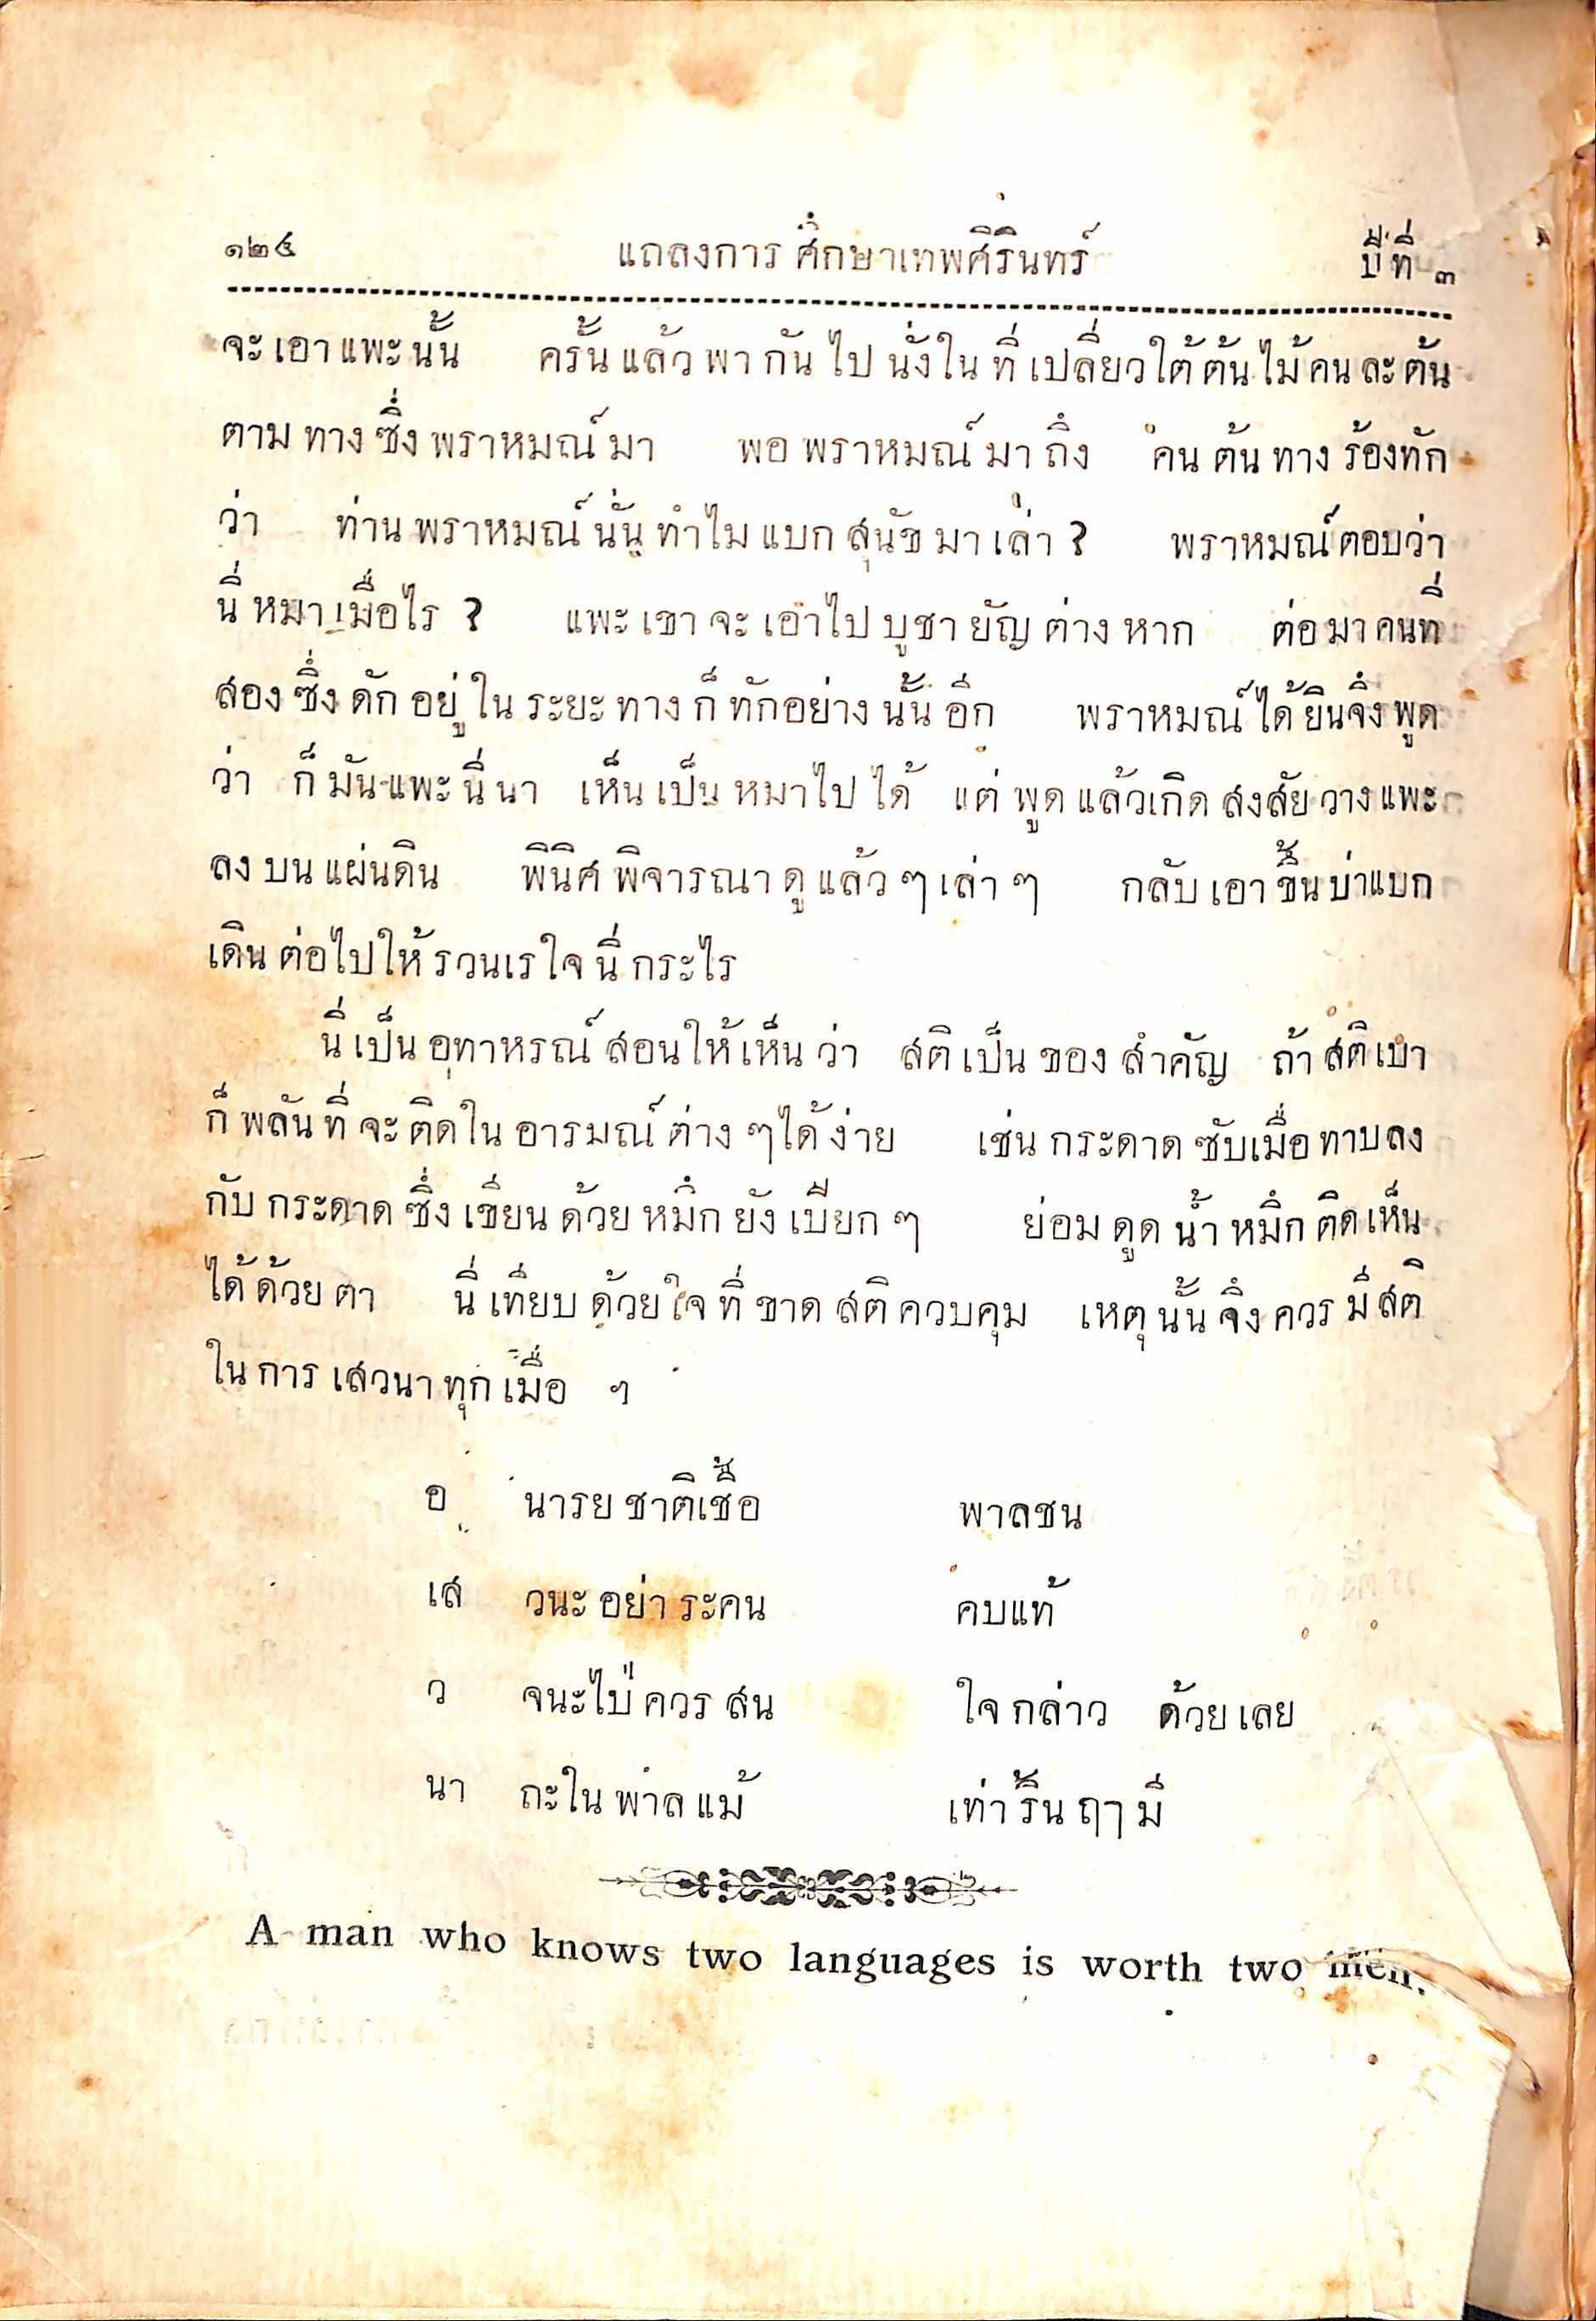 ๑๒๔ แถลงการ ศึกษาเทพศิรินทร์ ปีที่ ๓
จะเอาแพะนั้น ครั้นแล้วพากันไปนั่งในที่เปลี่ยวใต้ต้นไม้คนละต้น
ตามทางซึ่งพราหมณ์มา พอพราหมณ์มาถึง คนต้นทางร้องทัก
ว่า ท่านพราหมณ์นั่นทำไมแบกสุนัขมาเล่า? พราหมณ์ตอบว่า
นี่หมาเมื่อไร? แพะเขาจะเอาไปบูชายัญต่างหาก ต่อมาคนที่
สองซึ่งดักอยู่ในระยะทางก็ทักอย่างนั้นอีก พราหมณ์ได้ยินจึงพูด
ว่า ก็มันแพะนี่นา เห็นเป็นหมาไปได้ แต่พูดแล้วเกิดสงสัยวางแพะ
ลงบนแผ่นดิน พินิศพิจารณาดูแล้วๆเล่าๆ กลับเอาขึ้นบ่าแบก
เดินต่อไปให้รวนเรใจนี่กระไร
นี่เป็นอุทาหรณ์สอนให้เห็นว่า สติเป็นของสำคัญ ถ้าสติเบา
ก็พลันที่จะติดในอารมณ์ต่างๆได้ง่าย เช่นกระดาดซับเมื่อทาบลง
กับกระดาดซึ่งเขียนด้วยหมึกยังเปียกๆ ย่อมดูดน้ำหมึกติดเห็น
ได้ด้วยตา นี่เทียบด้วยใจที่ขาดสติควบคุม เหตุนั้นจึงควรมีสติ
ในการเสวนาทุกเมื่อ ๆ
อ นารยชาติเชื้อ พาลชน
เส วนะอย่าระคน คบแท้
ว จนะไป่ควรสน ใจกล่าว ด้วยเลย
นา ถะในพาลแม้ เท่าริ้นฤๅมี
A man who knows two languages is worth two men.